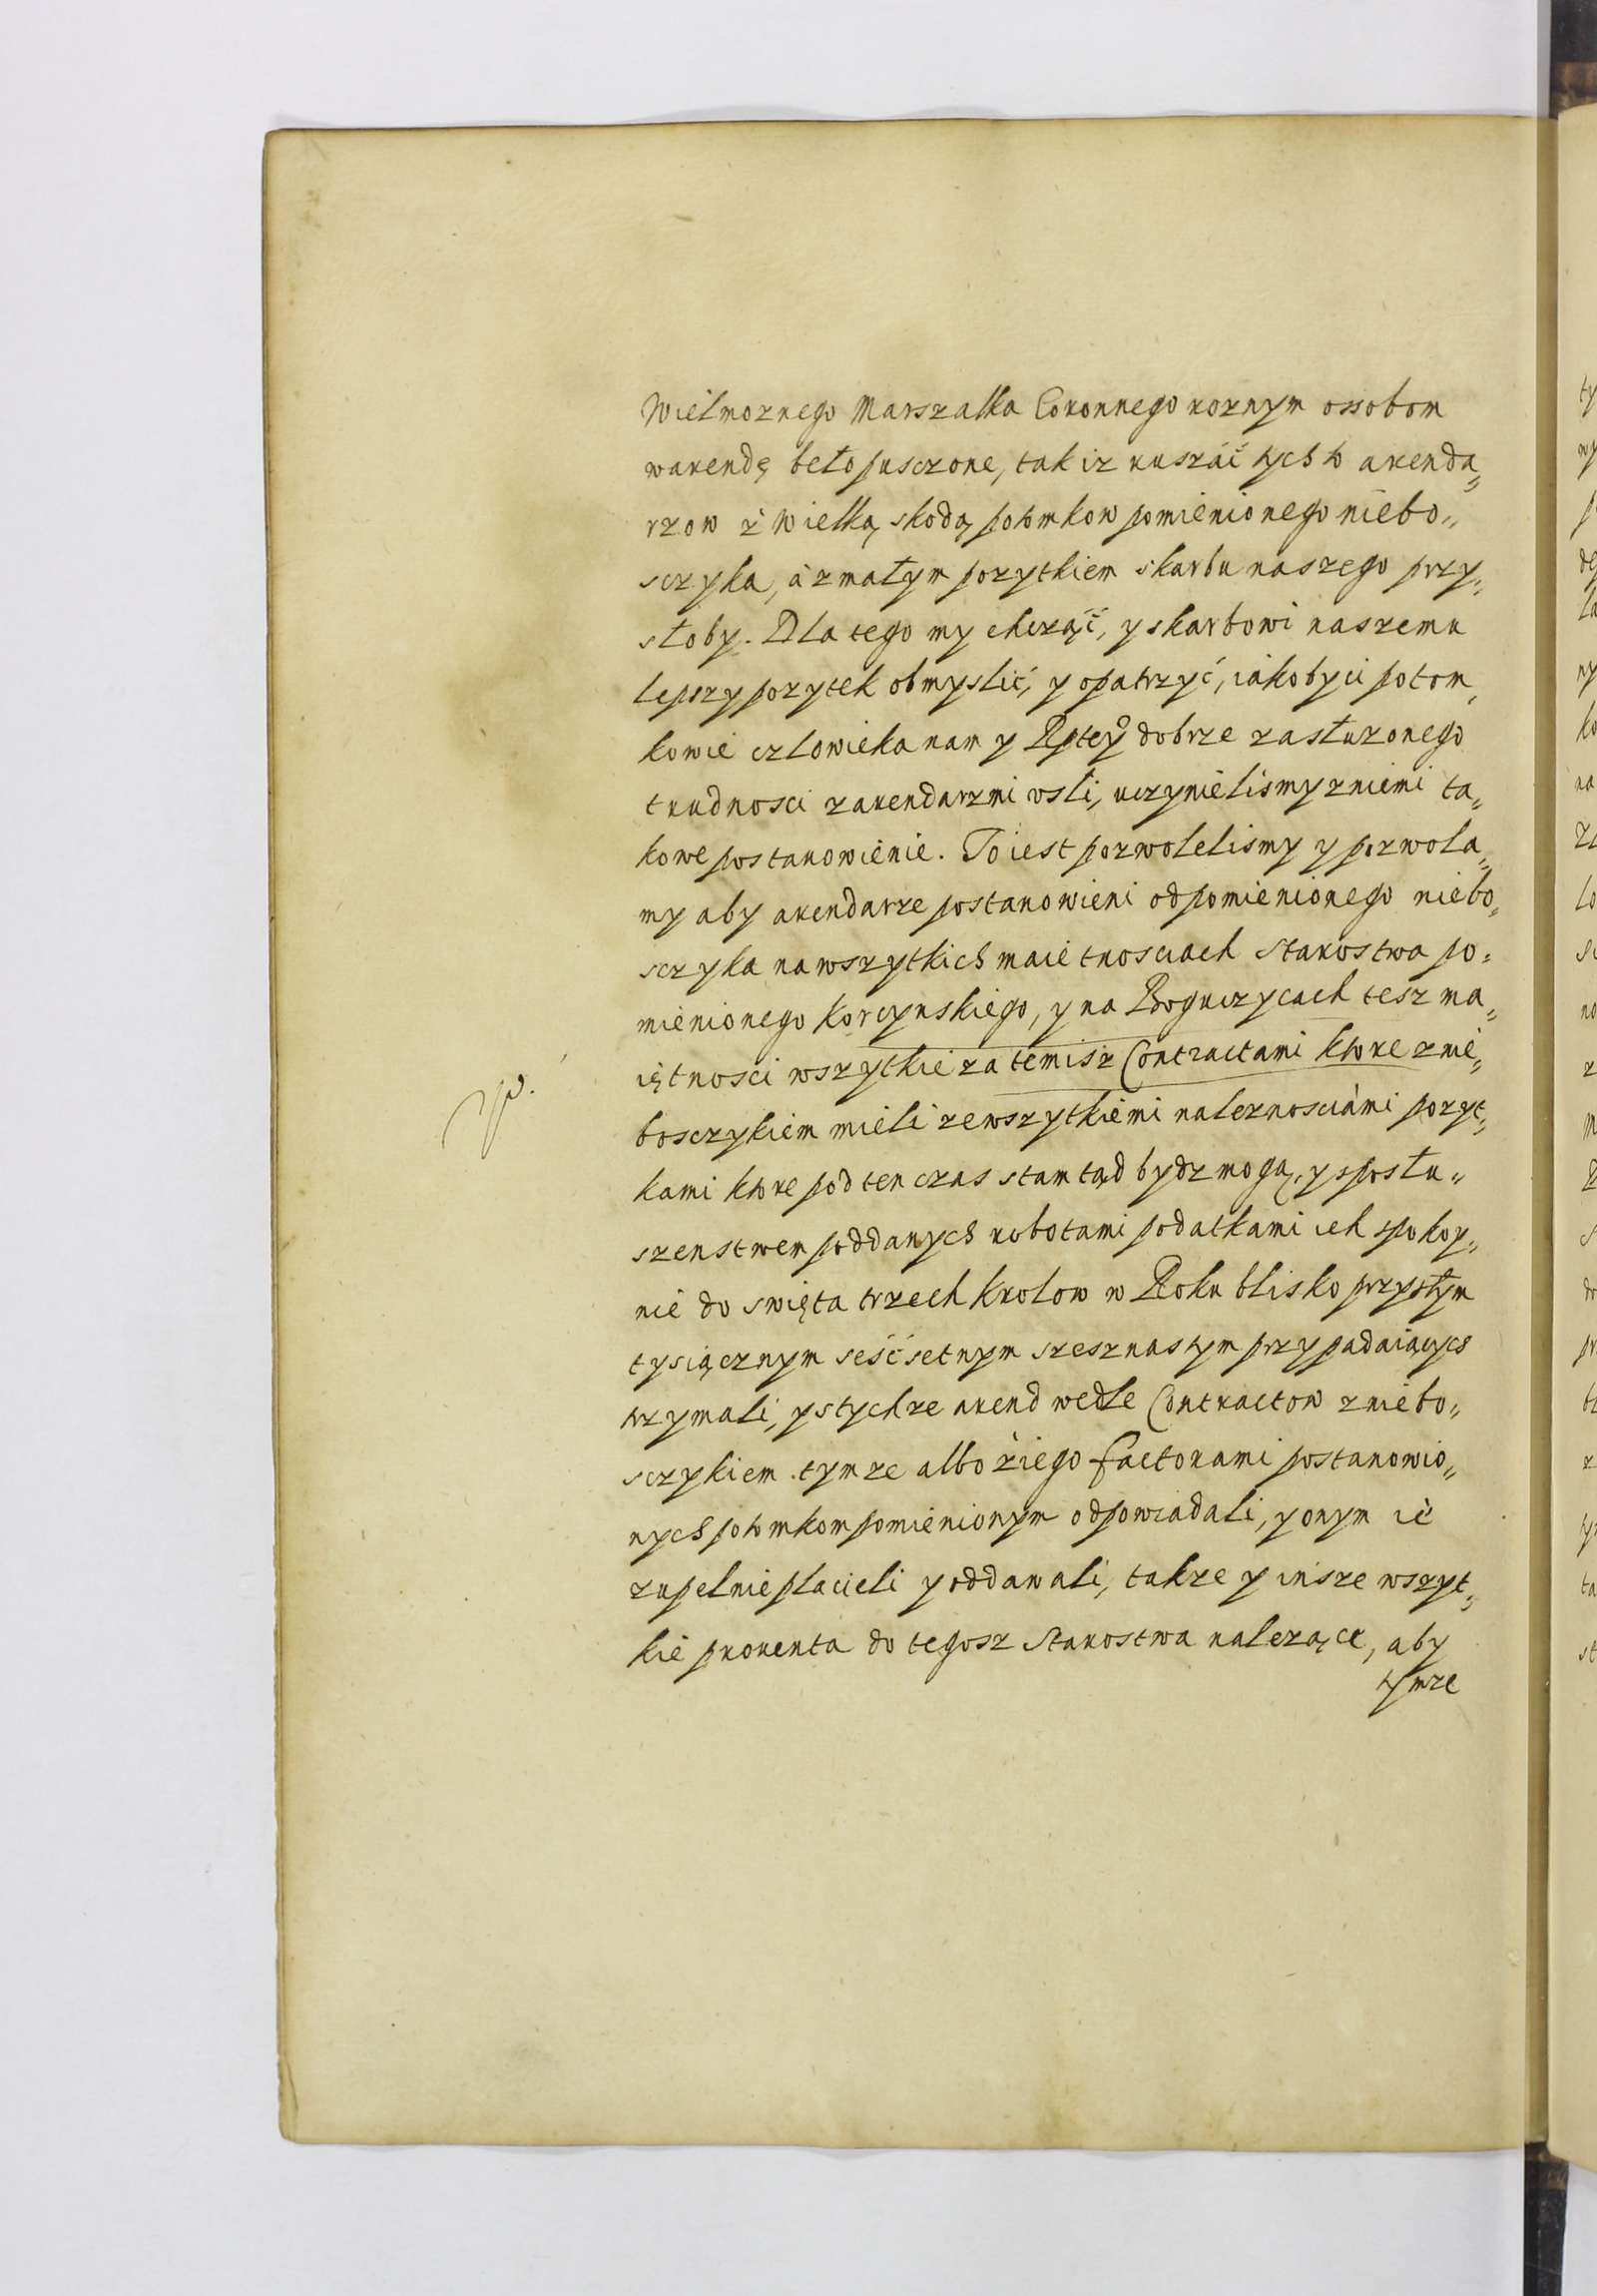 Wielmoznego Marszalka Coronnego roznym ossobom
warendę beło pusczone, tak iz ruszáiċ tych to arenda„
rzow z wielką skodą potomkow pomienionego niebo„
sczyka, á zmałym pozytkiem skarbu naszego przy„
słoby. Dla tego my chcząċ, y skarbowi naszemu
lepszy pozytek obmyslić, y opatrzyć, iakoby ci potom„
kowie czlowieka nam y Rptey dobrze zasłuzonego
trudnosci zarendarzmi vsli, uczynielismy zniemi ta„
kowe postanowienie. To iest pozwolelismy y pozwola„
my aby arendarze postanowieni od pomienionego niebo„
sczyka na wszytkich maietnosciach Starostwa po„
mienionego Korcynskiego, y na Boguczycach tesz ma„
iętnosci wszytkie za temisz Contractami ktore znie„
bosczykiem mieli zewszytkiemi naleznosciámi pozyt„
kami ktore pod ten czas stamtąd bydz mogą, y sposłu„
szenstwem poddanych robotami podatkami ich spokoy„
nie do swięta trzech krolow w Roku blisko przysłym
tysiącznym seśċsetnym szesznastym przypadaiących
trzymali, y stychze arend wedle Contractow zniebo„
sczykiem tymze albo ziego factorami postanowio„
nych potomkom pomienionym odpowiadali, y onym ie
zupelnie placieli y oddawali, takze y insze wszyt„
kie prouenta do tegosz Starostwa nalezące, aby
tymze